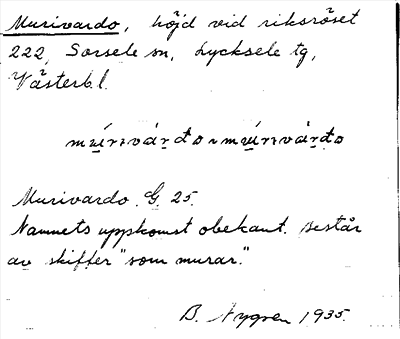 Murivardo, höjd vid riksröset
222, Sorsele sn, Lycksele tg,
Västerb.l.
mu̱ŕrivárdo ~ mu̱ŕrivárdo
Murivardo G 25.
Namnets uppkomst obekant. Består
av skiffer "som murar."
B. Nygren 1935.